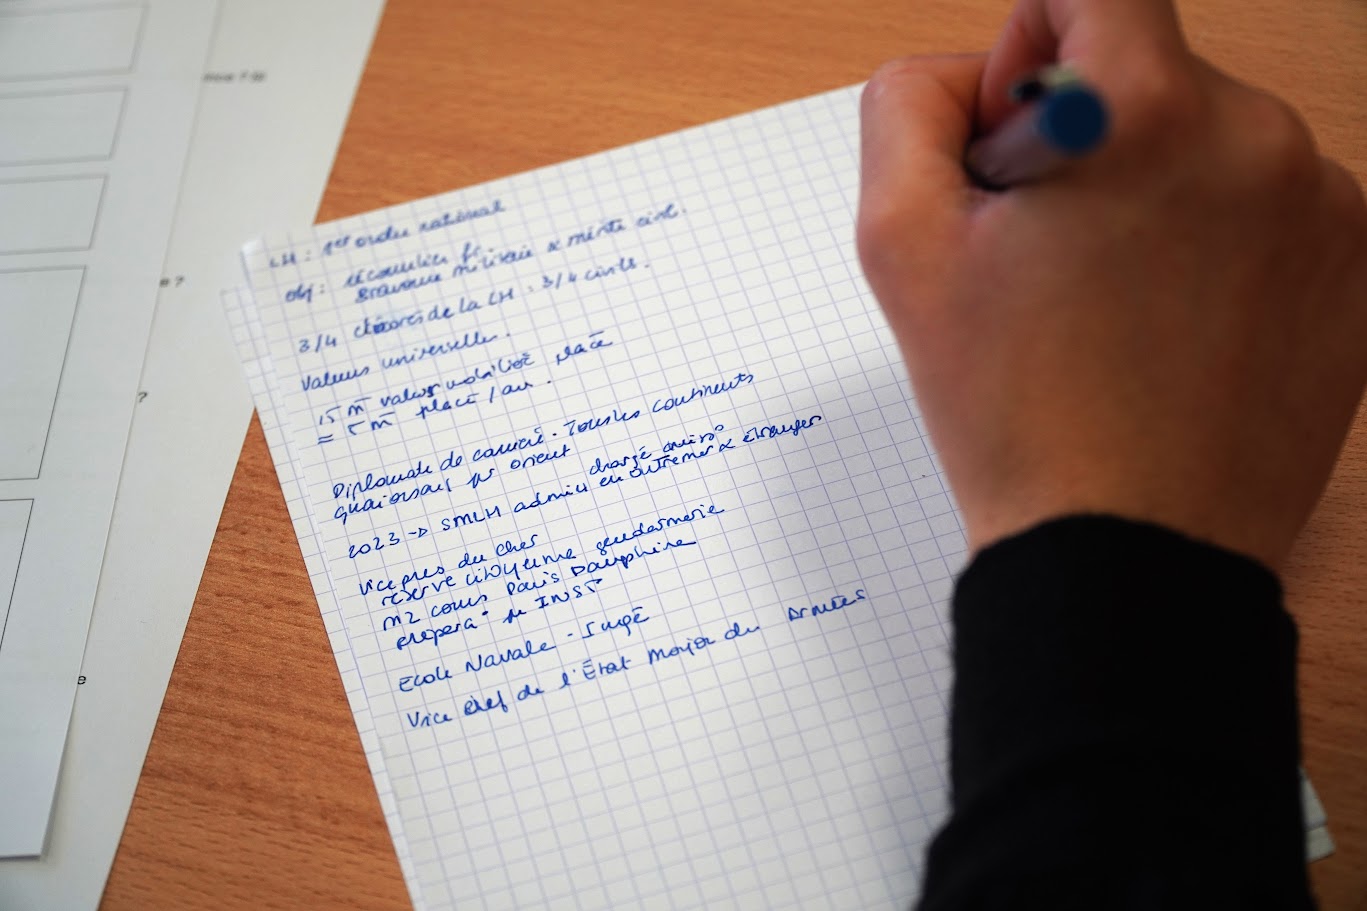 LH : 1er ordre national
obj : réconcilier fr.
bravoure militaire & mérite civil.
3/4 décorés de la LH = 3/4 civils.
Valeurs universelles.
15 m̄ valeur mobilité place
= 5 m̄ place / an.
Diplomate de carrière. Tous les continents
quai orsay pr orient
chargé
2023 → SMLH admin en outremer & étranger
Vice pres du cher
réserve citoyenne gendarmerie
M2 cours Paris Dauphine
prépara° pr INSP
Ecole Navale - Ingé
Vice chef de l'État Major des Armées
?
?
e